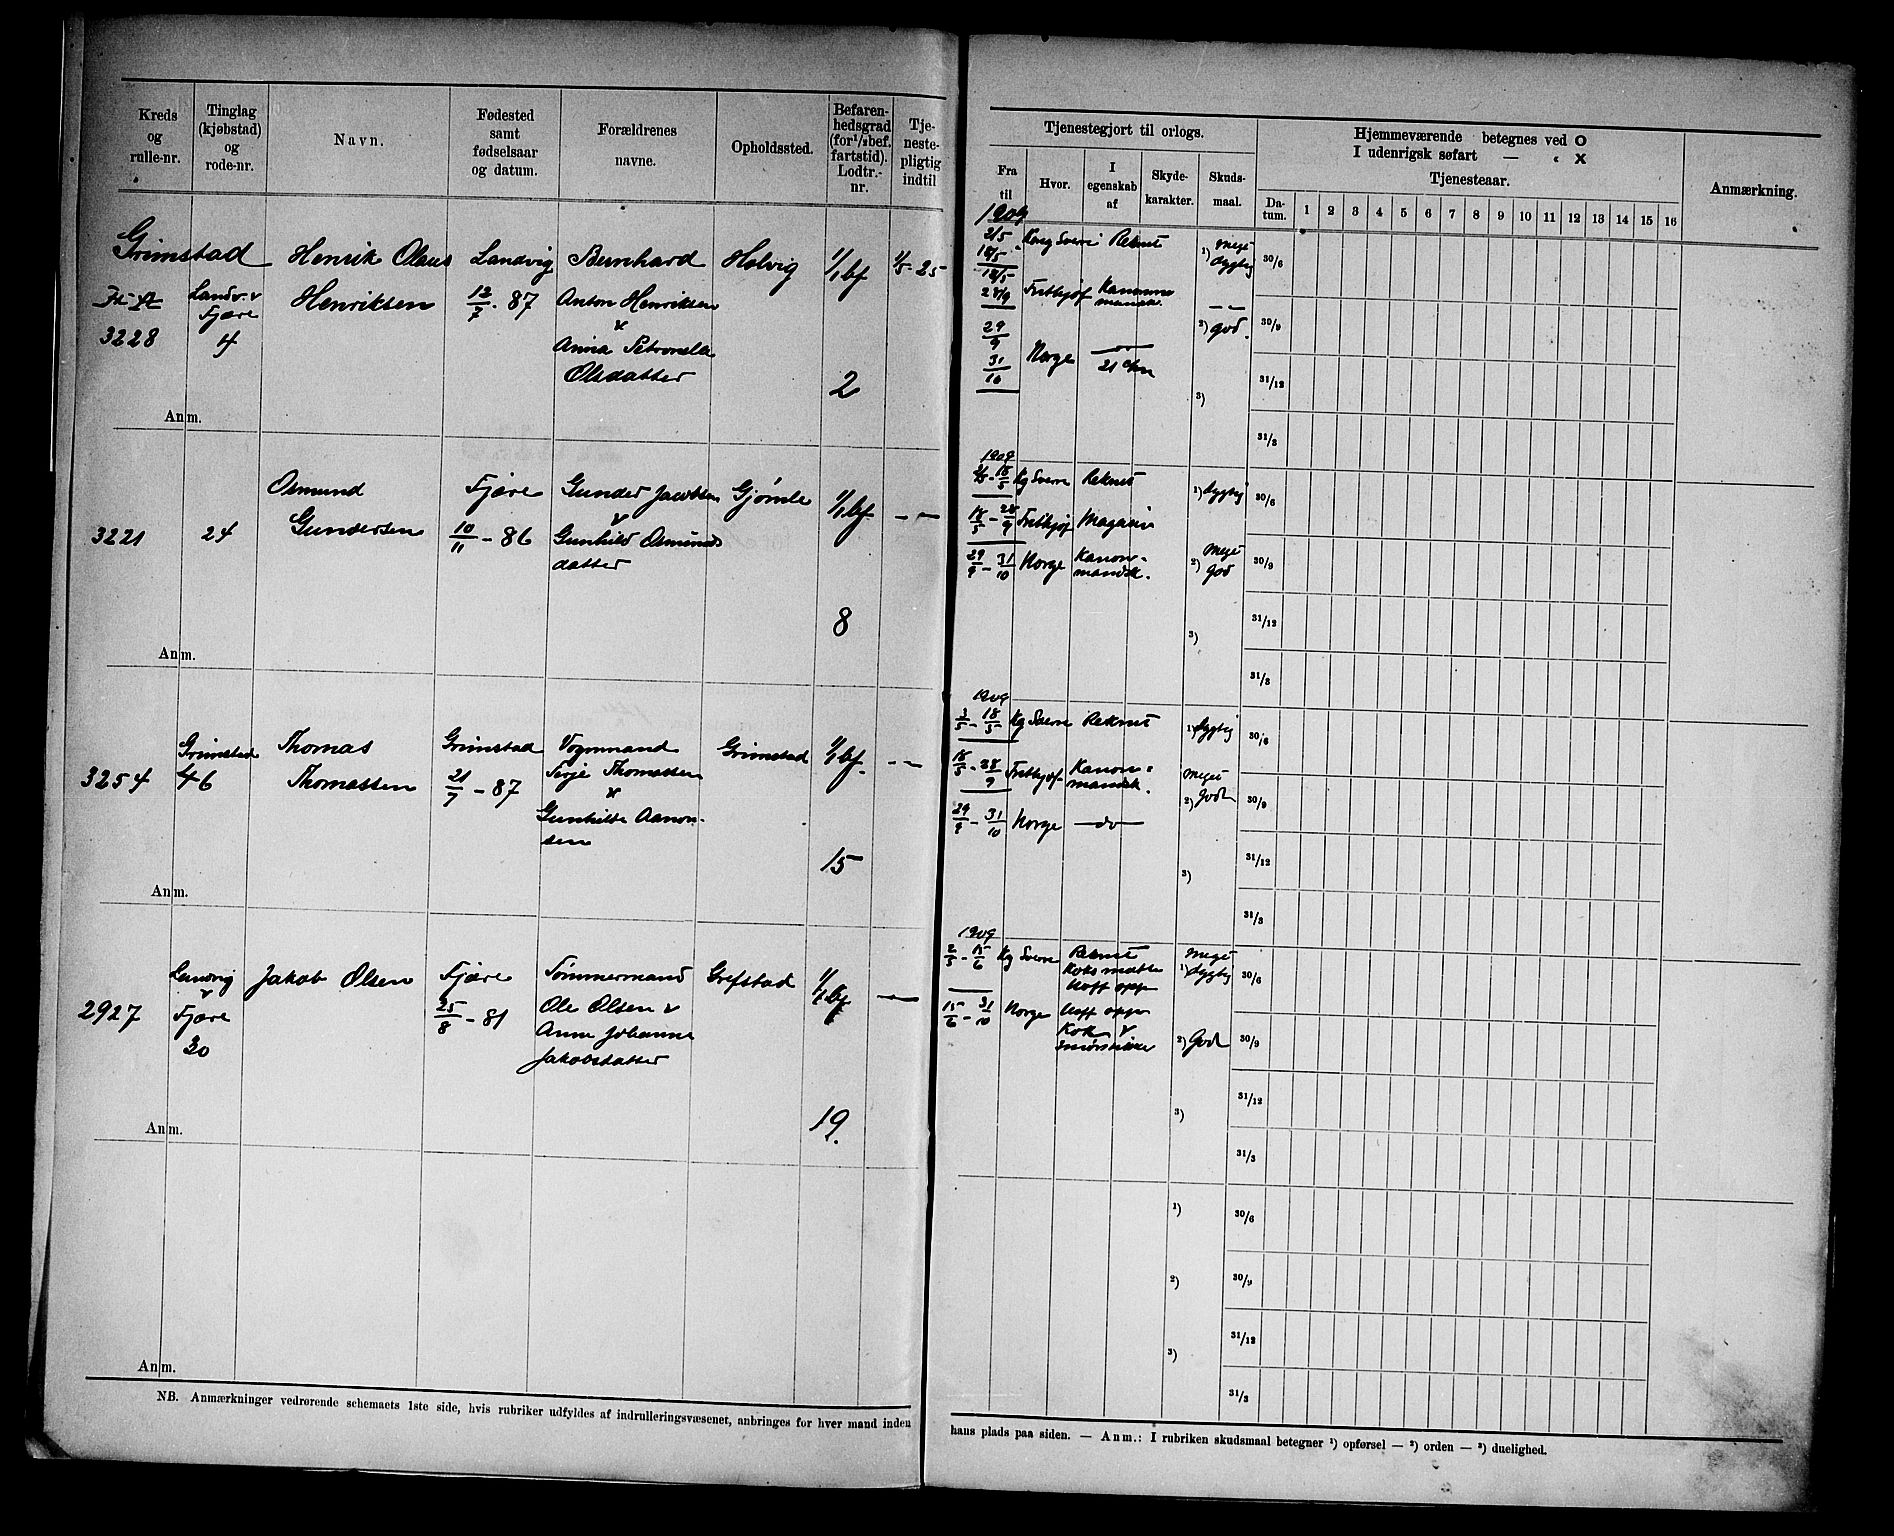 Kreds og rulle-nr.
Tinglag (kjøbstad) og rode-nr.
Navn.
Fødested samt fødselsaar og datum.
Forældrenes navne.
Opholdssted.
Befaren-hedsgrad (for 1/2 bef. fartstid). Lodtr.-nr.
Tje-neste-pligtig indtil
Tjenestegjort til orlogs.
Fra til
Hvor.
I egenskab af
Skyde-karakter.
Skuds-maal.
Hjemmeværende betegnes ved O
I udenrigsk søfart — « X
Tjenesteaar.
Da-tum.
1 2 3 4 5 6 7 8 9 10 11 12 13 14 15 16
Anmærkning.
Grimstad
3228
Landv. & Fjære
4
Henrik Olaus
Henriksen
Landvig
12/7 - 87
Bernhard
Anton Henriksen
&
Anna Petronella
Olsdatter
Holvig
1/1 bf
2
1/5 - 25
1909
2/5
18/5
18/5
28/9
29/9
31/10
Kong Sverre
Rekrut
Frithjof
Kanon-
mandsk.
Norge
— do —
21 cm
1) Meget
dygtig
2) god.
3)
30/6
30/9
31/12
31/3
Anm.
3221
24
Osmund
Gundersen
Fjære
10/11 - 86
Gunder Jacobsen
&
Gunhild Osmunds
datter
Gjømle
1/1 bf
8
— —
1909
2/5 - 18/5 Kg Sverre Rekrut
18/5 - 28/9 Frithjof Magasin
29/9 - 31/10 Norge Kanon-
mandsk.
1) dygtig
2) Meget
God
3)
30/6
30/9
31/12
31/3
Anm.
3254
Grimstad
46
Thomas
Thomassen
Grimstad
21/7 - 87
Vognmand
Terje Thomassen
&
Gunhilde Aanon-
sen
Grimstad
1/1 bf.
15
— —
1909
3/5 - 18/5 Kg Sverre Rekrut
18/5 - 28/9 Frithjof Kanon-
mandsk.
29/9 - 31/10 Norge — do —
1) dygtig
2) Meget
God
3)
30/6
30/9
31/12
31/3
Anm.
2927
Landvig
&
Fjære
30
Jakob Olsen
Fjære
25/8 - 81
Tømmermand
Ole Olsen &
Anne Johanne
Jakobsdatter
Grefstad
1/1 bf
19.
—
1909
2/5 - 15/6 Kg Sverre Rekrut
Koksmath
Uoff opp
15/6 - 31/10 Norge Uoff opp
Kok &
1) Meget
dygtig
2) God
3)
30/6
30/9
31/12
31/3
Anm.
1)
2)
3)
30/6
30/9
31/12
31/3
Anm.
NB. Anmærkninger vedrørende schemaets 1ste side, hvis rubriker udfyldes af indrulleringsvæsenet, anbringes for hver mand inden
hans plads paa siden. — Anm.: I rubriken skudsmaal betegner 1) opførsel — 2) orden — 3) duelighed.